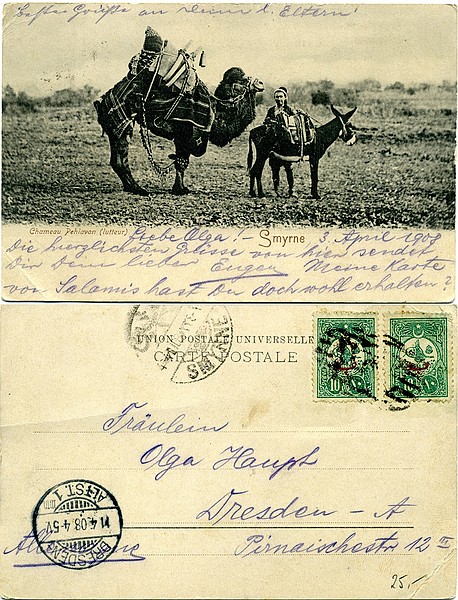 Beste Grüße an Deine l. Eltern!
Chameau Pehlavan (lutteur)
Smyrne
Liebe Olga! – 3. April 1908
Die herzlichsten Grüsse von hier sendet
Dir Dein lieber Eugen Meine Karte
von Salamis hast Du doch wohl erhalten?
UNION POSTALE UNIVERSELLE
CARTE POSTALE
SMYRNE
10
10
Fräulein
Olga Haupt
Dresden - A
Pirnaischestr 12 III
Allemagne
DRESDEN
ALTST. 1
11.4.08.4-5V.
25,-